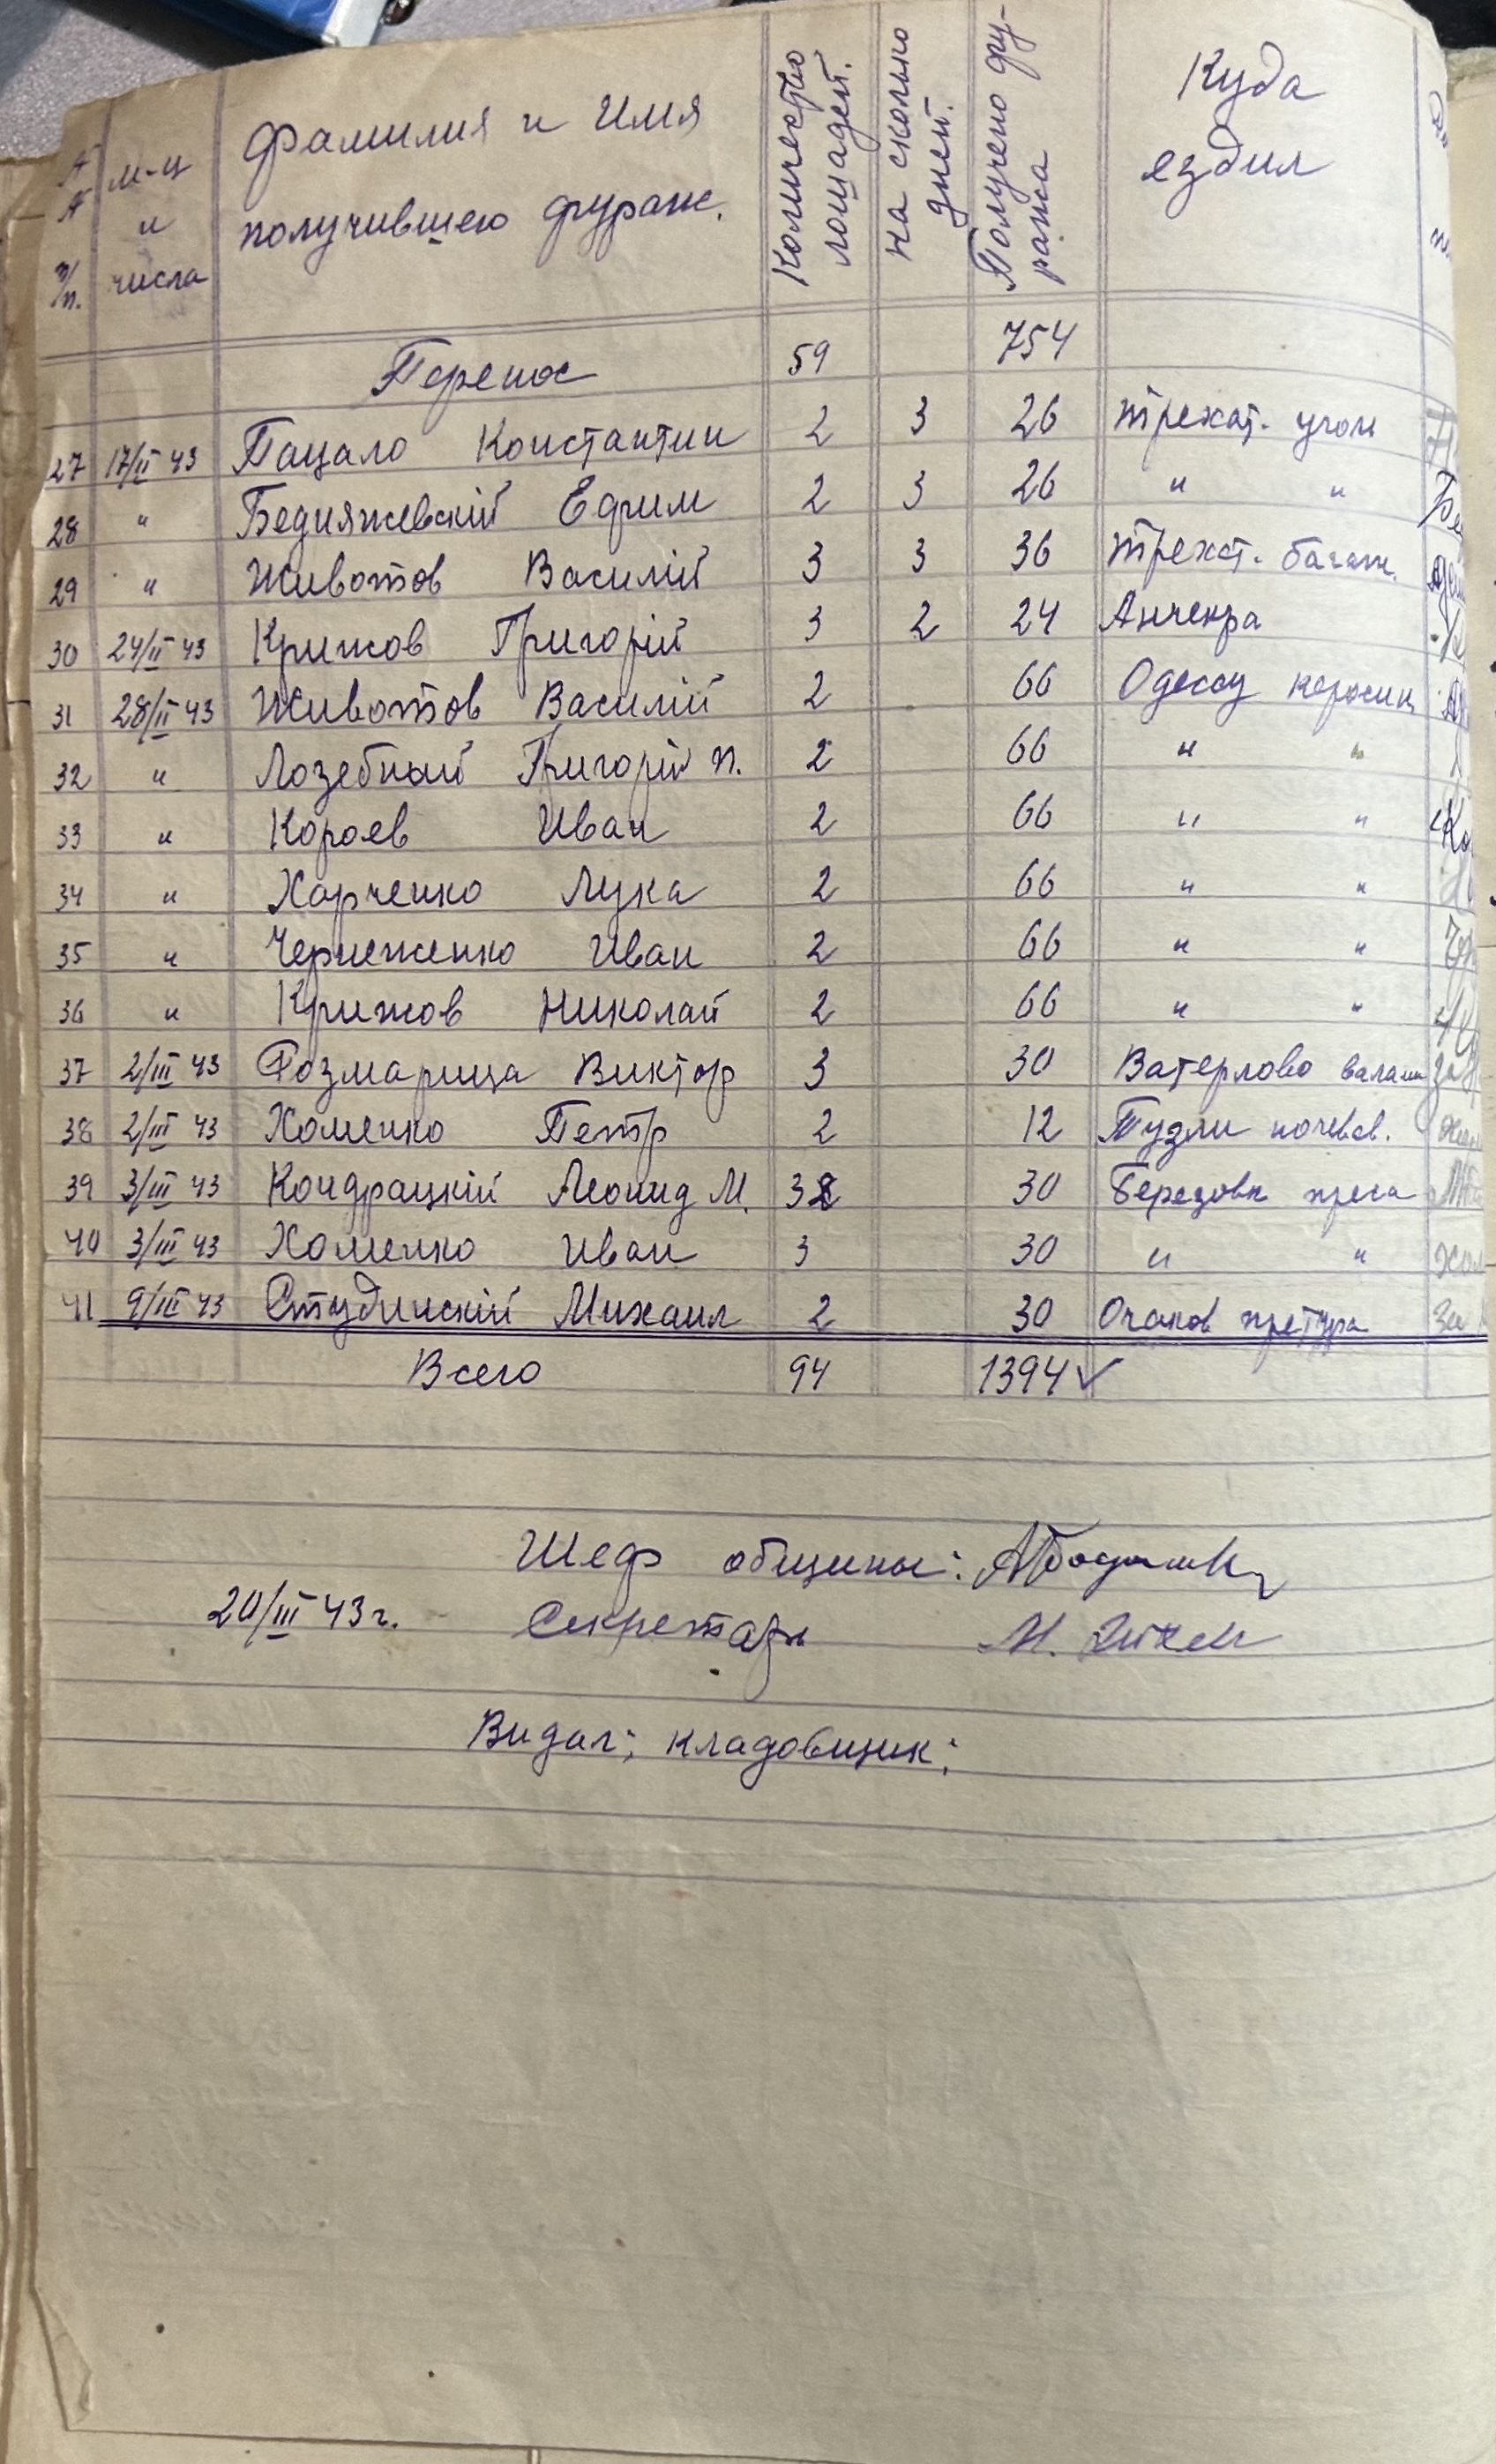 №№ п/п. м-ц и числа Фамилия и Имя получившего фураж. Количество лошадей. на сколько дней. Получено фуража Куда ездил
Перенос 59 754
27 17/II 43 Пацало Константин 2 3 26 трехат. угол
28 " Бедияжевскій Ефим 2 3 26 " "
29 " Животов Василій 3 3 36 трехат. багаж.
30 24/II 43 Крижов Григорій 3 2 24 Анчекра
31 28/II 43 Животов Василій 2 66 Одессу керосин
32 " Лозебный Григорій п. 2 66 " "
33 " Короев Иван 2 66 " "
34 " Харченко Лука 2 66 " "
35 " Чернеженко Иван 2 66 " "
36 " Крижов Николай 2 66 " "
37 2/III 43 Розмарица Виктор 3 30 Ватерлово
38 2/III 43 Хоменко Петр 2 12 Тузли ночевов.
39 3/III 43 Кондрацкій Леонид М. 3 30 Березовк преса
40 3/III 43 Хоменко Иван 3 30 " "
41 9/III 43 Студинскій Михаил 2 30 Очаков претура
Всего 94 1394 ✓
Шеф общины:
20/III 43 г. Секретарь
Видал; кладовщик: